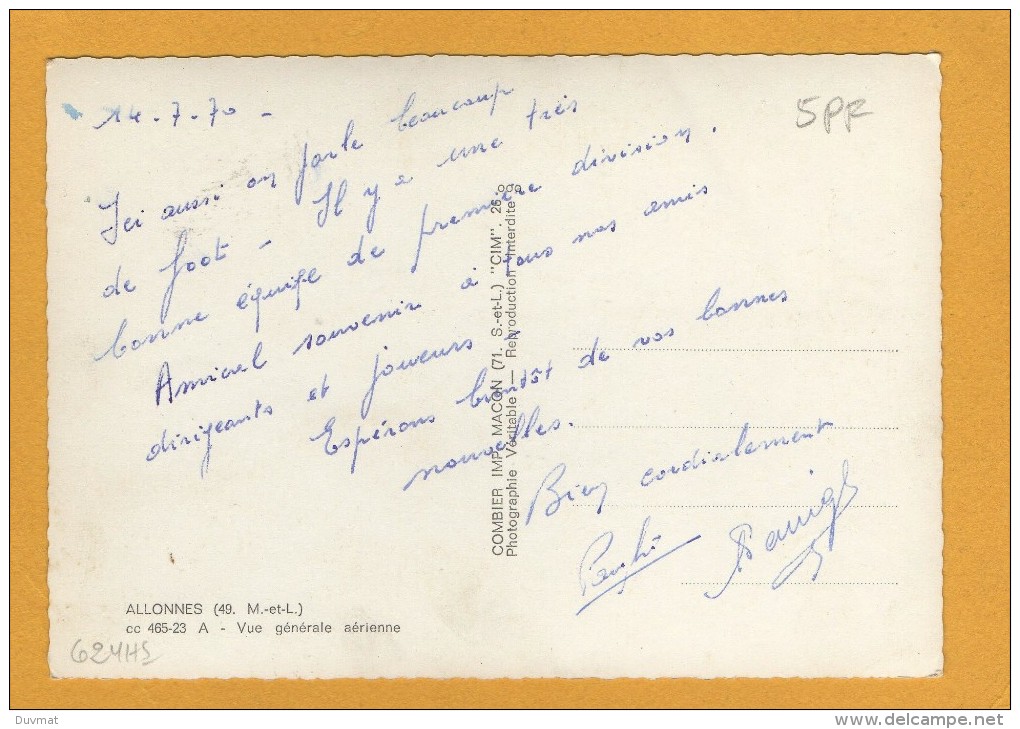 14-7-70 -
5PF
Ici aussi on parle beaucoup
de foot - Il y a une très
bonne équipe de première division.
Amical souvenir à tous nos amis
dirigeants et joueurs.
Espérons bientôt de vos bonnes
nouvelles.
Bien cordialement
COMBIER IMP. MACON (71. S.-et-L.) "CIM".
Photographie Véritable — Reproduction Interdite
ALLONNES (49. M.-et-L.)
cc 465-23 A - Vue générale aérienne
Duvmat
www.delcampe.net